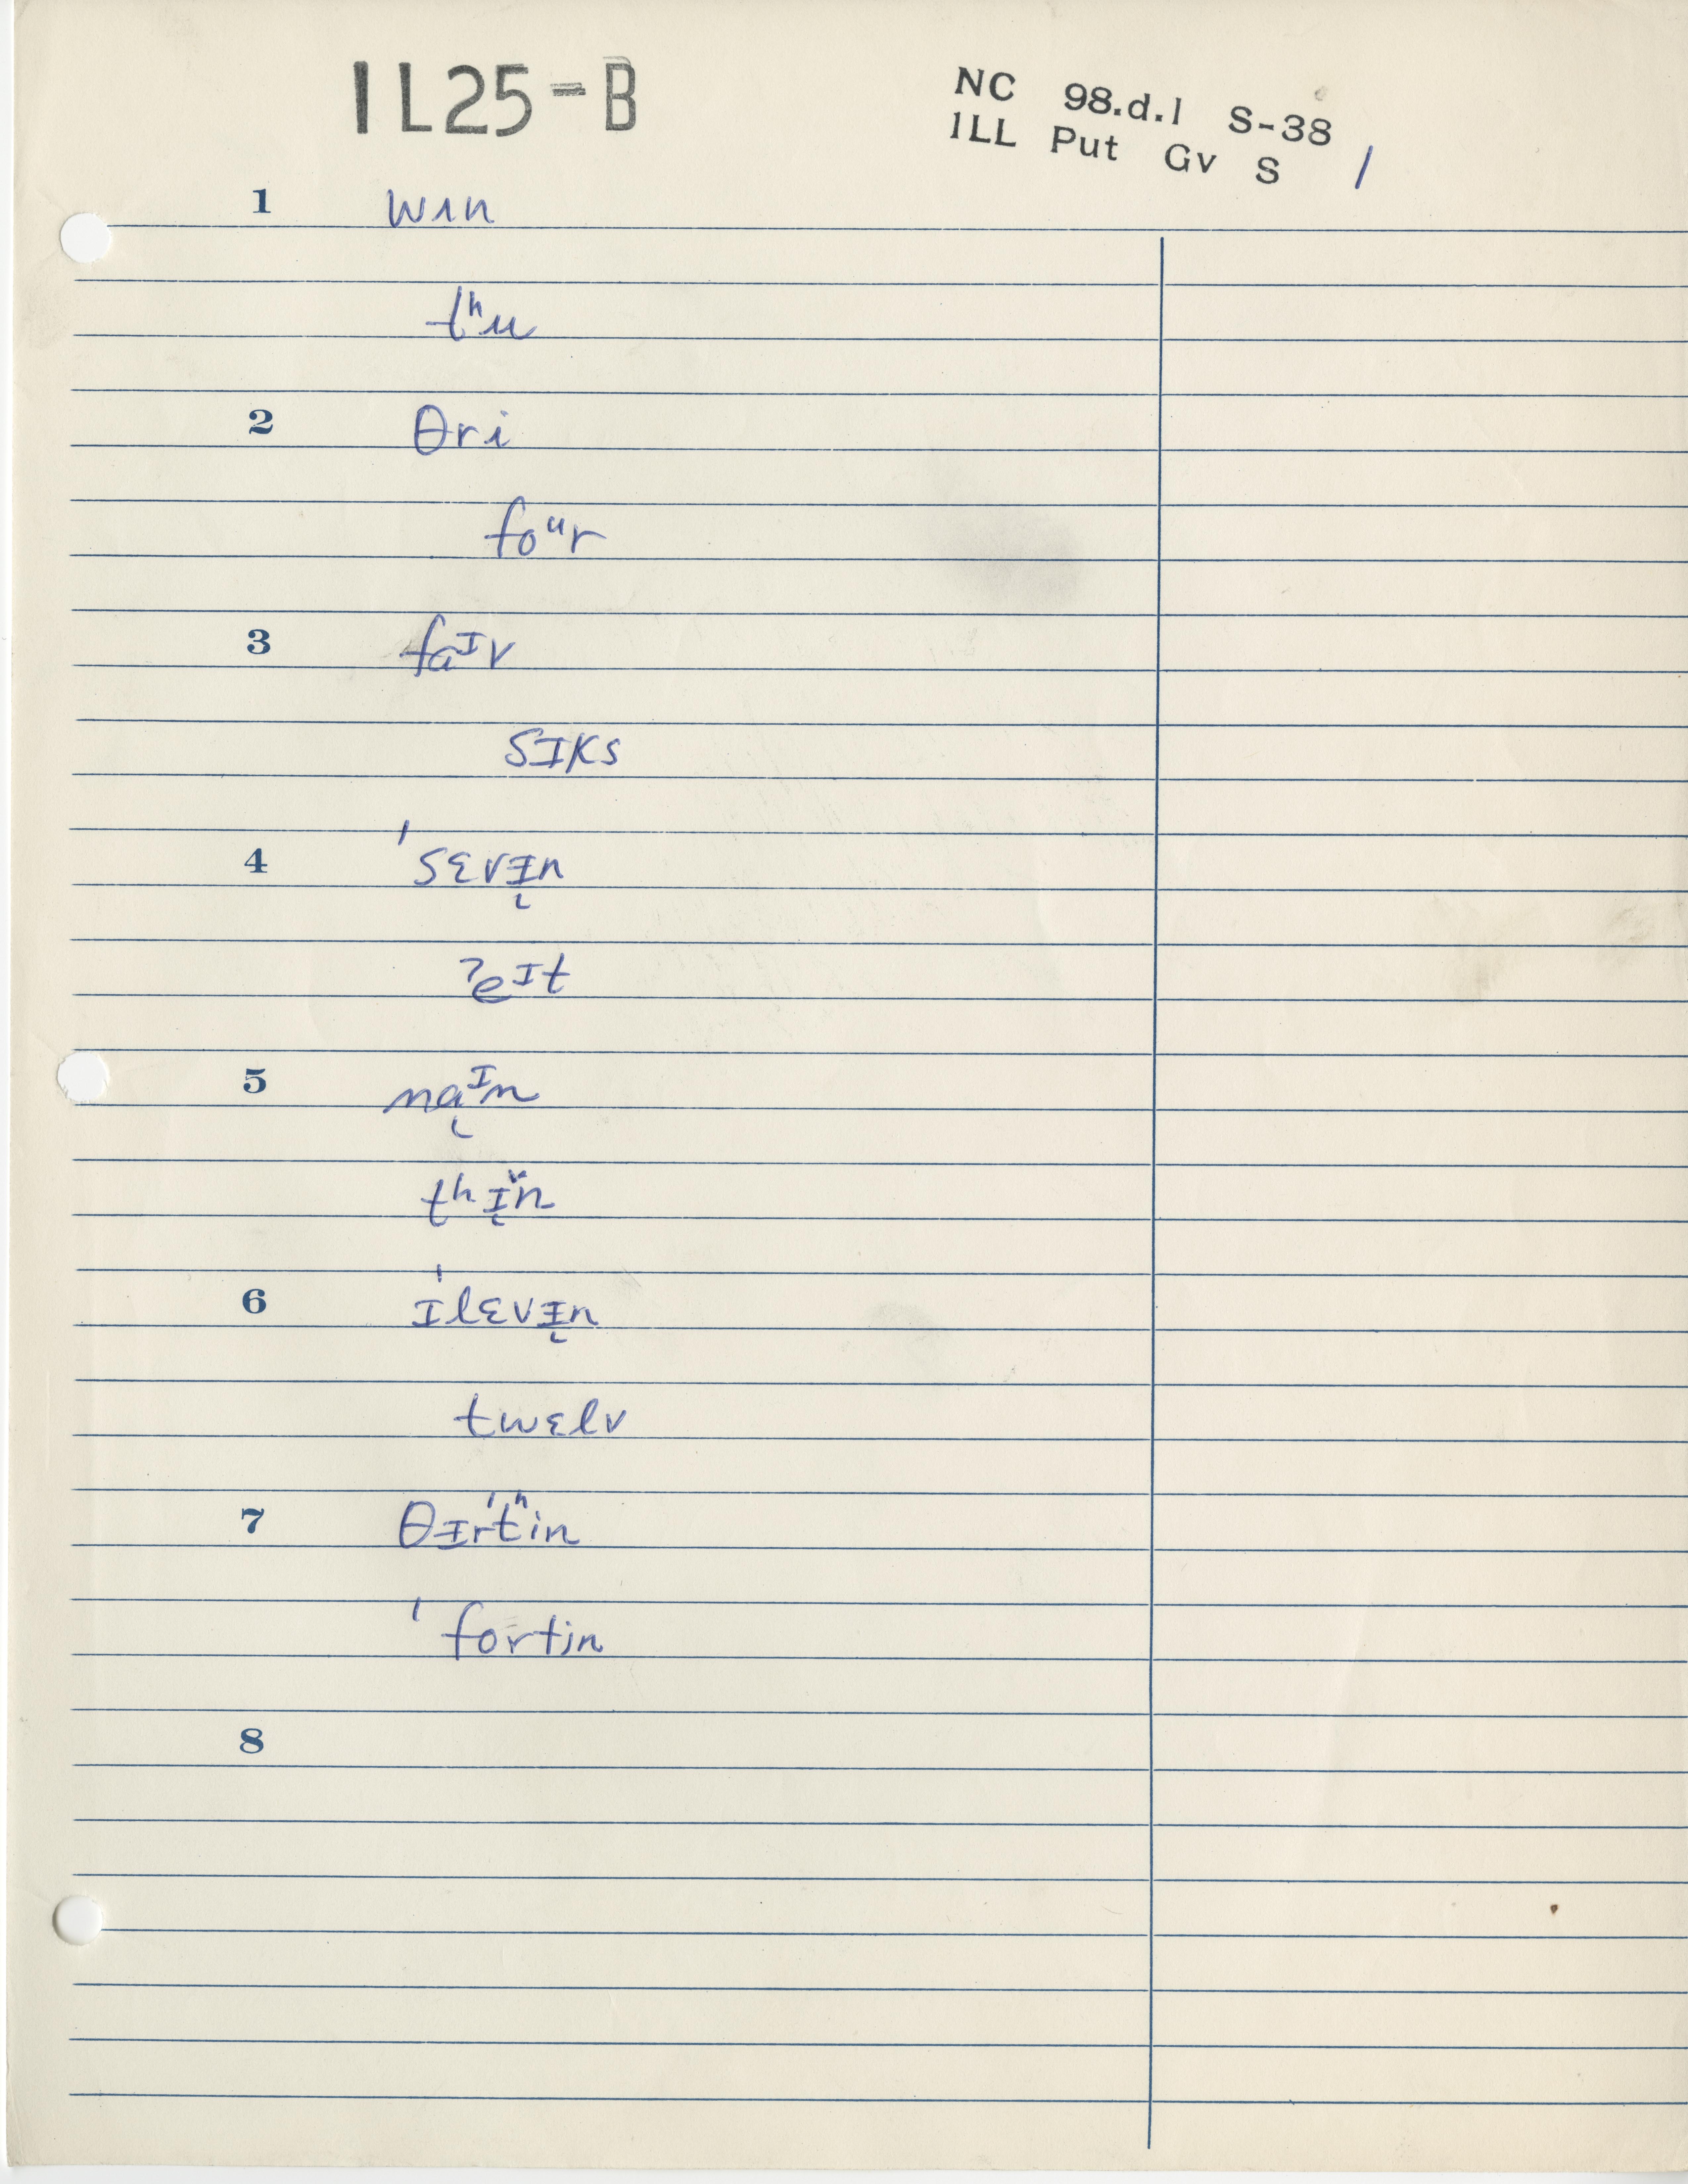 IL25-B
NC 98.d.1 S-38
ILL Put Gv S /
1 wʌn
tʰu
2 θri
foᵘr
3 faᶦv
sɪks
4 ˈsɛvɪ̵n
ʔeᶦt
5 naᶦn
tʰɪ̌n
6 ɪˈlɛvɪ̵n
twɛlv
7 θɪ̵rˈtʰin
ˈfortin
8